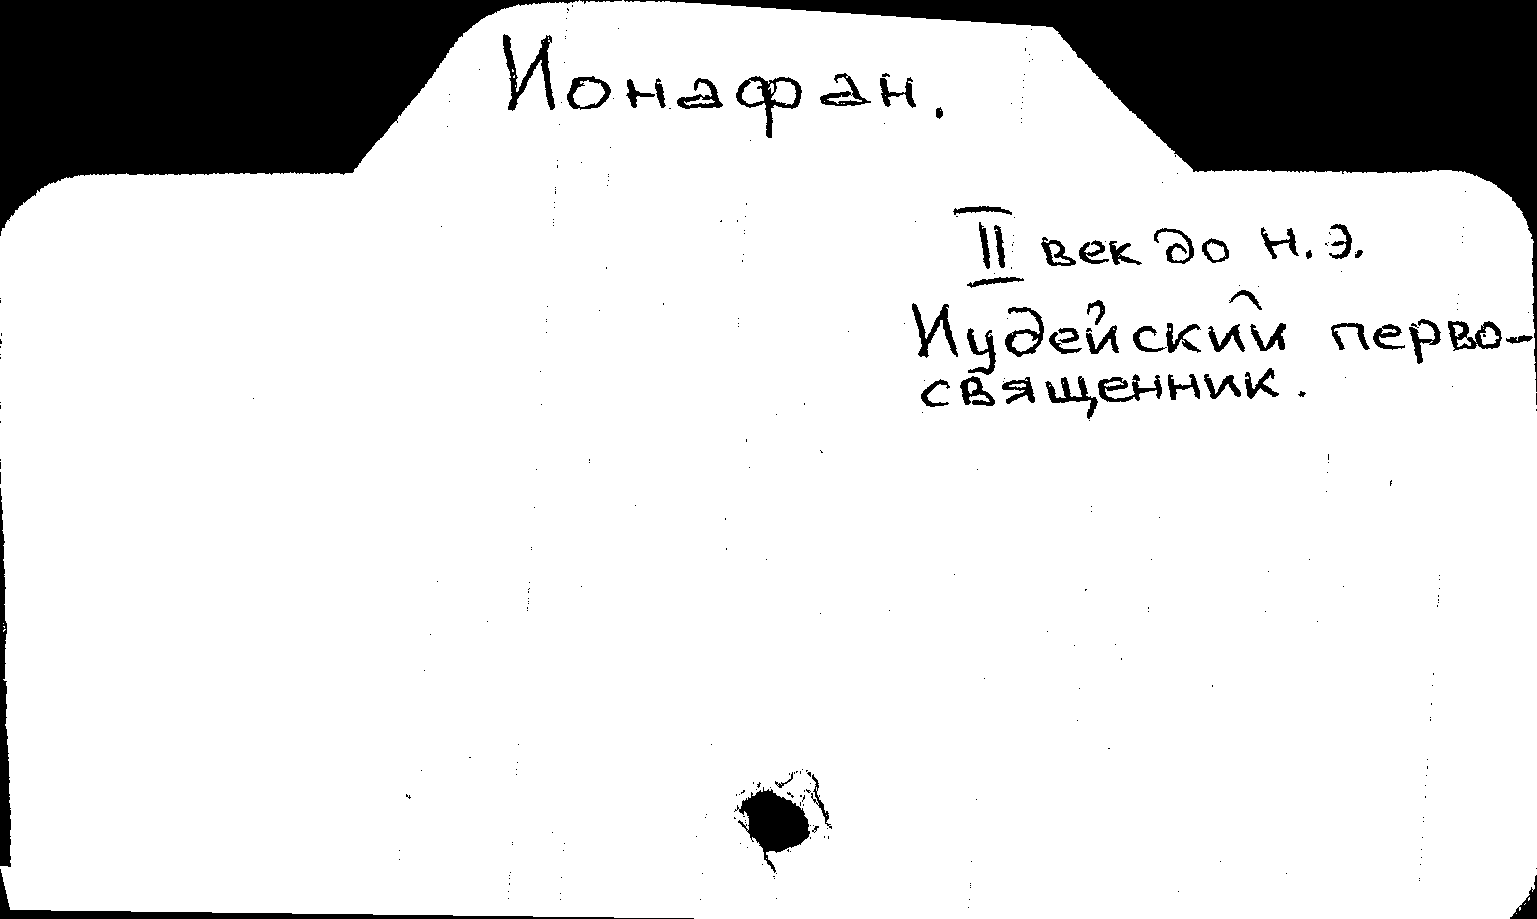 Ионафан.
II век до н.э.
Иудейский перво-
священник.